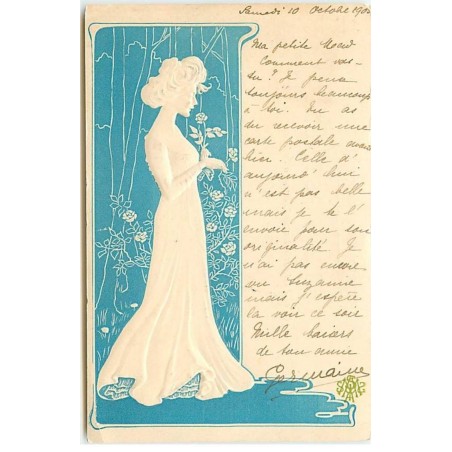 Samedi 10 Octobre 190
Ma petite
Comment vas-
tu? Je pense
toujours beaucoup
à toi. Tu as
du recevoir une
carte postale avant
hier. Celle d'
aujourd'hui
n'est pas belle
mais je te l'
envoie pour son
originalité Je
n'ai pas encore
vu Suzanne
mais j'espère
la voir ce soir
Mille baisers
de ton amie
Germaine